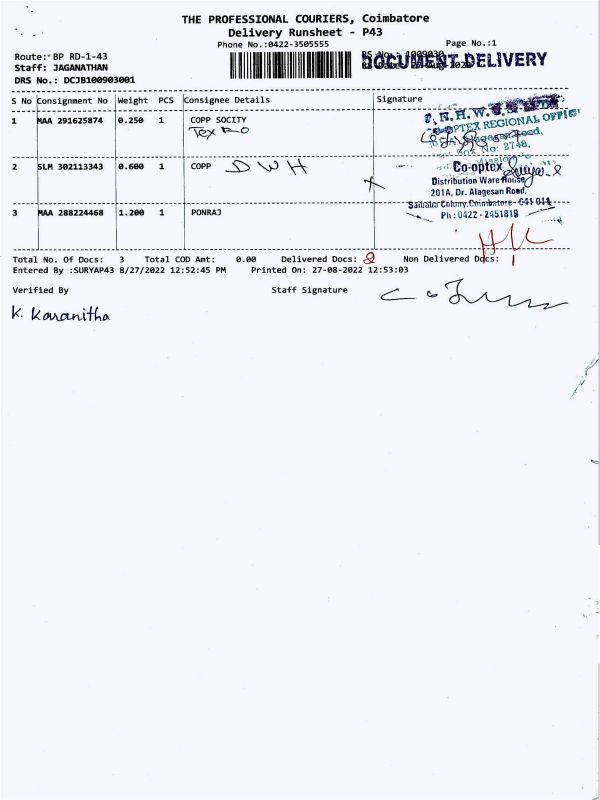 THE PROFESSIONAL COURIERS, Coimbatore
Delivery Runsheet - P43
Phone No.:0422-3505555
Page No.:1
Route: BP RD-1-43
Staff: JAGANATHAN
DRS No.: DCJB100903001
DOCUMENT DELIVERY
S No Consignment No Weight PCS Consignee Details Signature
1 MAA 291625874 0.250 1 COPP SOCITY
Tex RO
OPTEX REGIONAL OFFICE
2 SLM 302113343 0.600 1 COPP DWH
Co-optex
Distribution Ware House
201A, Dr. Alagesan Road,
Saibaba Colony, Coimbatore - 641 011
Ph : 0422 - 2451819
3 MAA 288224468 1.200 1 PONRAJ
Total No. Of Docs: 3 Total COD Amt: 0.00 Delivered Docs: 2 Non Delivered Docs: 1
Entered By :SURYAP43 8/27/2022 12:52:45 PM Printed On: 27-08-2022 12:53:03
Verified By Staff Signature
K. Kavanitha